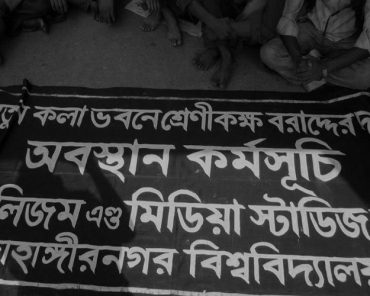 কলা ভবনে শ্রেণীকক্ষ বরাদ্দের
অবস্থান কর্মসূচি
লিজম এণ্ড মিডিয়া স্টাডিজ
জাহাঙ্গীরনগর বিশ্ববিদ্যালয়